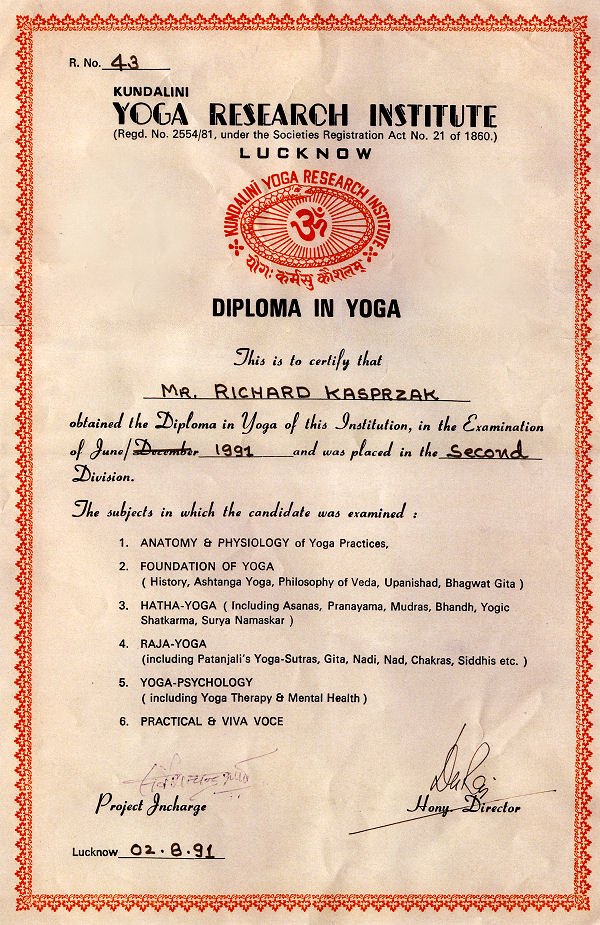 R. No. 43
KUNDALINI
YOGA RESEARCH INSTITUTE
(Regd. No. 2554/81, under the Societies Registration Act No. 21 of 1860.)
LUCKNOW
KUNDALINI YOGA RESEARCH INSTITUTE
ॐ
योगः कर्मसु कौशलम्
DIPLOMA IN YOGA
This is to certify that
MR. RICHARD KASPRZAK
obtained the Diploma in Yoga of this Institution, in the Examination
of June/December 1991 and was placed in the Second
Division.
The subjects in which the candidate was examined :
1. ANATOMY & PHYSIOLOGY of Yoga Practices,
2. FOUNDATION OF YOGA
( History, Ashtanga Yoga, Philosophy of Veda, Upanishad, Bhagwat Gita )
3. HATHA-YOGA ( Including Asanas, Pranayama, Mudras, Bhandh, Yogic
Shatkarma, Surya Namaskar )
4. RAJA-YOGA
(including Patanjali's Yoga-Sutras, Gita, Nadi, Nad, Chakras, Siddhis etc. )
5. YOGA-PSYCHOLOGY
( including Yoga Therapy & Mental Health )
6. PRACTICAL & VIVA VOCE
Project Incharge
Hony. Director
Lucknow 02.8.91